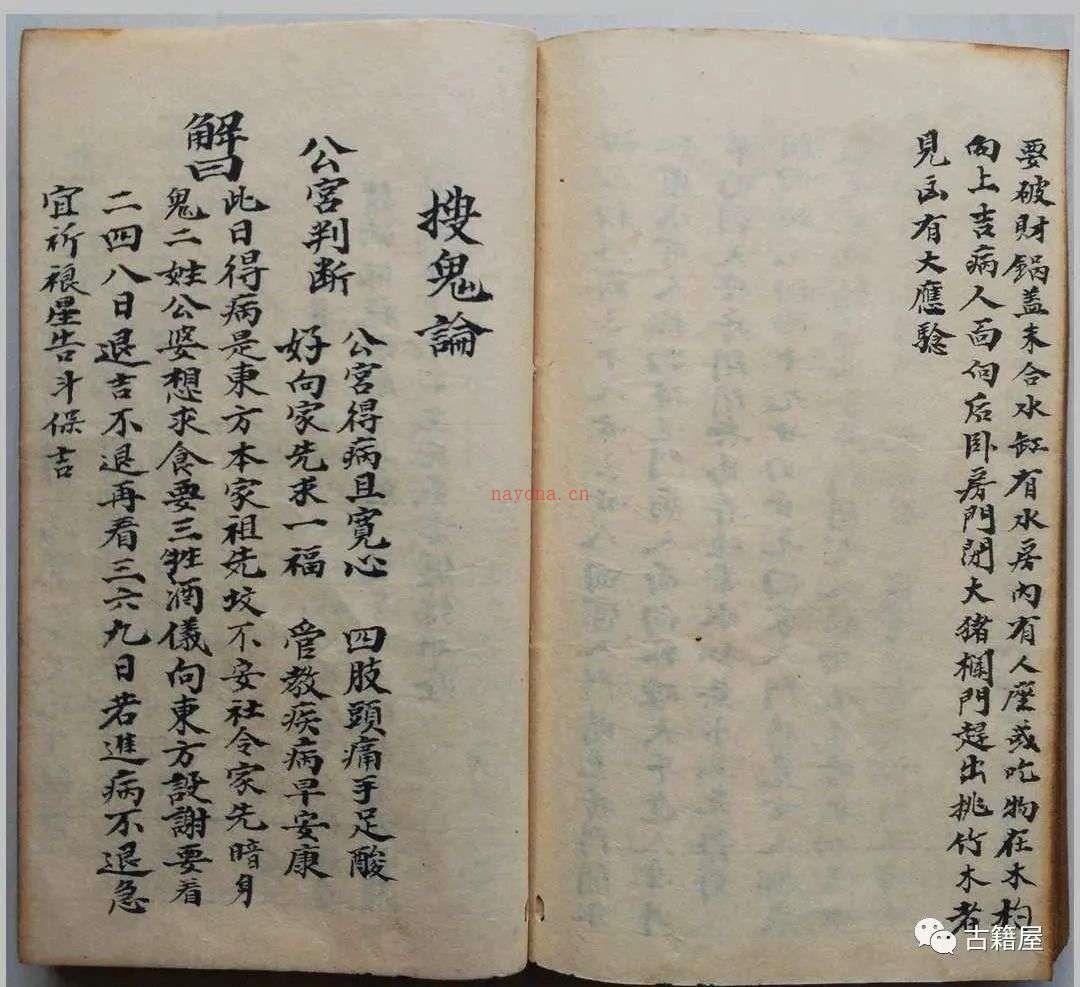 要破財鍋盖未合水缸有水房内有人座或吃物在木杓
向上吉病人面向后卧房門閉大猪欄門趕出挑竹木者
見凶有大應驗
搜鬼論
公宮得病且寬心 四肢頭痛手足酸
公宮判断
好向家先求一福 管教疾病早安康
解曰
此日得病是東方本家祖先坟不安社令家先暗身
鬼二姓公婆想求食要三牲酒儀向東方設謝要看
二四八日退吉不退再看三六九日若進病不退急
宜祈禳星告斗保吉
nayona.cn
古籍屋